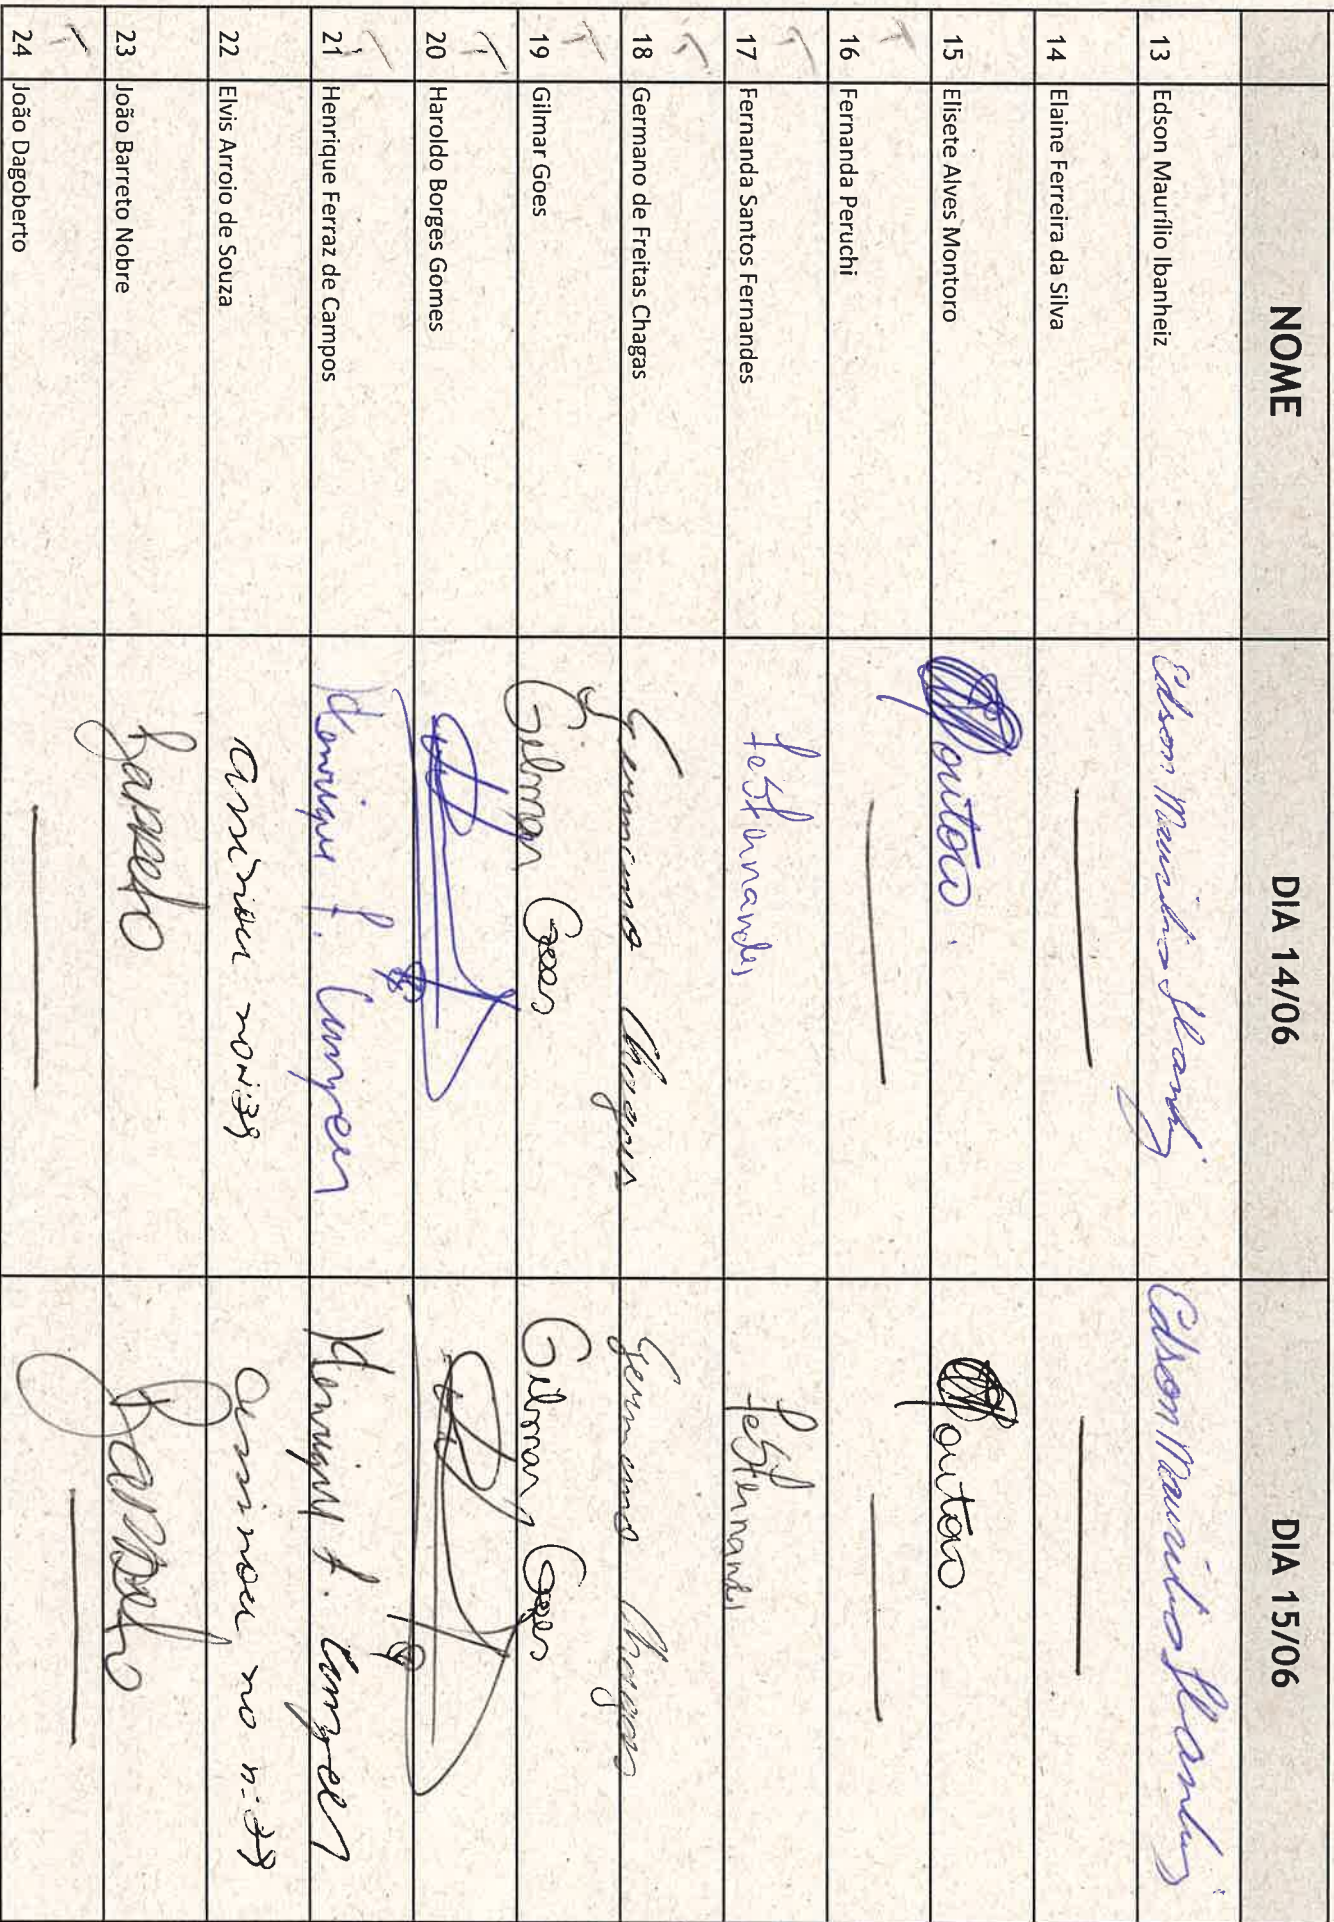 NOME DIA 14/06 DIA 15/06
13 Edson Maurílio Ibanheiz Edson Maurílio Edson Maurílio
14 Elaine Ferreira da Silva
15 Elisete Alves Montoro
16 Fernanda Peruchi
17 Fernanda Santos Fernandes FeSFernandes FeSFernandes
18 Germano de Freitas Chagas Germano Chagas Germano Chagas
19 Gilmar Goes Gilmar Goes Gilmar Goes
20 Haroldo Borges Gomes
21 Henrique Ferraz de Campos Henrique f. Campos Henrique f. Campos
22 Elvis Arroio de Souza assinou no assinou no
23 João Barreto Nobre Barreto Barreto
24 João Dagoberto